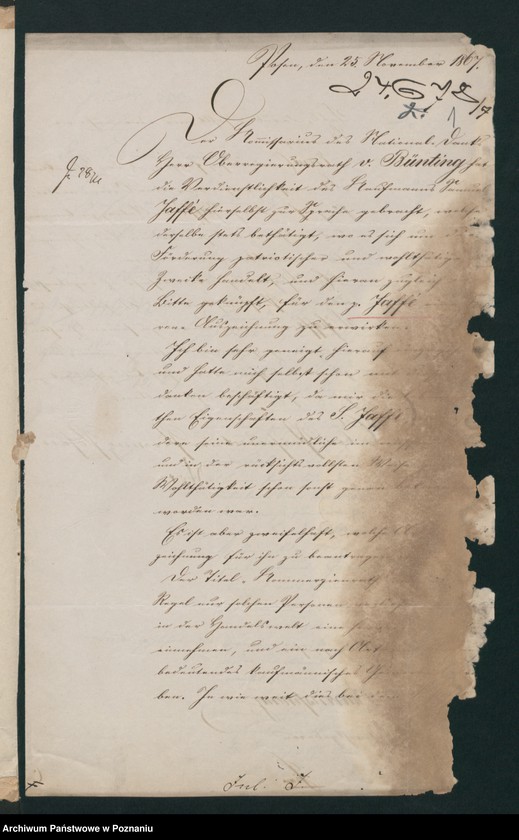 Posen, den 25. November 1867.
Der Kommissarius des National-Dank
Herr Oberregierungsrath v. Bünting hat
die Verdienstlichkeit des Kaufmanns Samuel
Jaffé hierselbst zur Sprache gebracht, welche
derselbe stets bethätigt, wo es sich um die
Förderung patriotischer und wohlthätiger
Zwecke handelt, und hieran zugleich
Bitte geknüpft, für den p. Jaffé
Auszeichnung zu erwirken.
Ich bin sehr geneigt, hierauf
und hatte mich selbst schon
danken beschäftigt, da mir die
chen Eigenschaften des S. Jaffé
dere seine unermüdliche
und in der rücksichtsvollsten Weise
Wohlthätigkeit schon sonst
worden war.
Es ist aber zweifelhaft, welche
zeichnung für ihn zu beantragen
Der Titel „Kommerzienrath
Regel nur solchen Personen
in der Handelswelt eine
einnehmen, und ein nach
bedeutendes kaufmännisches
ben. In wie weit dies bei dem
Archiwum Państwowe w Poznaniu